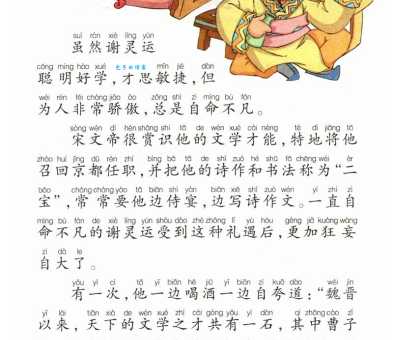 suī rán xiè líng yùn
虽然谢灵运
cōng míng hào xué mǐn jié dàn
聪明好学，才思敏捷，但
wéi rén fēi cháng jiāo ào zǒng shì zì mìng bù fán
为人非常骄傲，总是自命不凡。
sòng wén dì hěn shǎng shí tā de wén xué cái néng tè dì jiāng tā
宋文帝很赏识他的文学才能，特地将他
zhào huí jīng dū rèn zhí bìng bǎ tā de shī zuò hé shū fǎ chēng wéi èr
召回京都任职，并把他的诗作和书法称为“二
bǎo cháng cháng yào tā biān shì yàn biān xiě shī zuò wén yì zhí zì
宝”，常常要他边侍宴，边写诗作文。一直自
mìng bù fán de xiè líng yùn shòu dào zhè zhǒng lǐ yù hòu gèng jiā kuáng wàng
命不凡的谢灵运受到这种礼遇后，更加狂妄
zì dà le
自大了。
yǒu yí cì tā yì biān hē jiǔ yì biān zì kuā dào wèi jìn
有一次，他一边喝酒一边自夸道：“魏晋
yǐ lái tiān xià de wén xué zhī cái gòng yǒu yí dàn qí zhōng cáo zǐ
以来，天下的文学之才共有一石，其中曹子